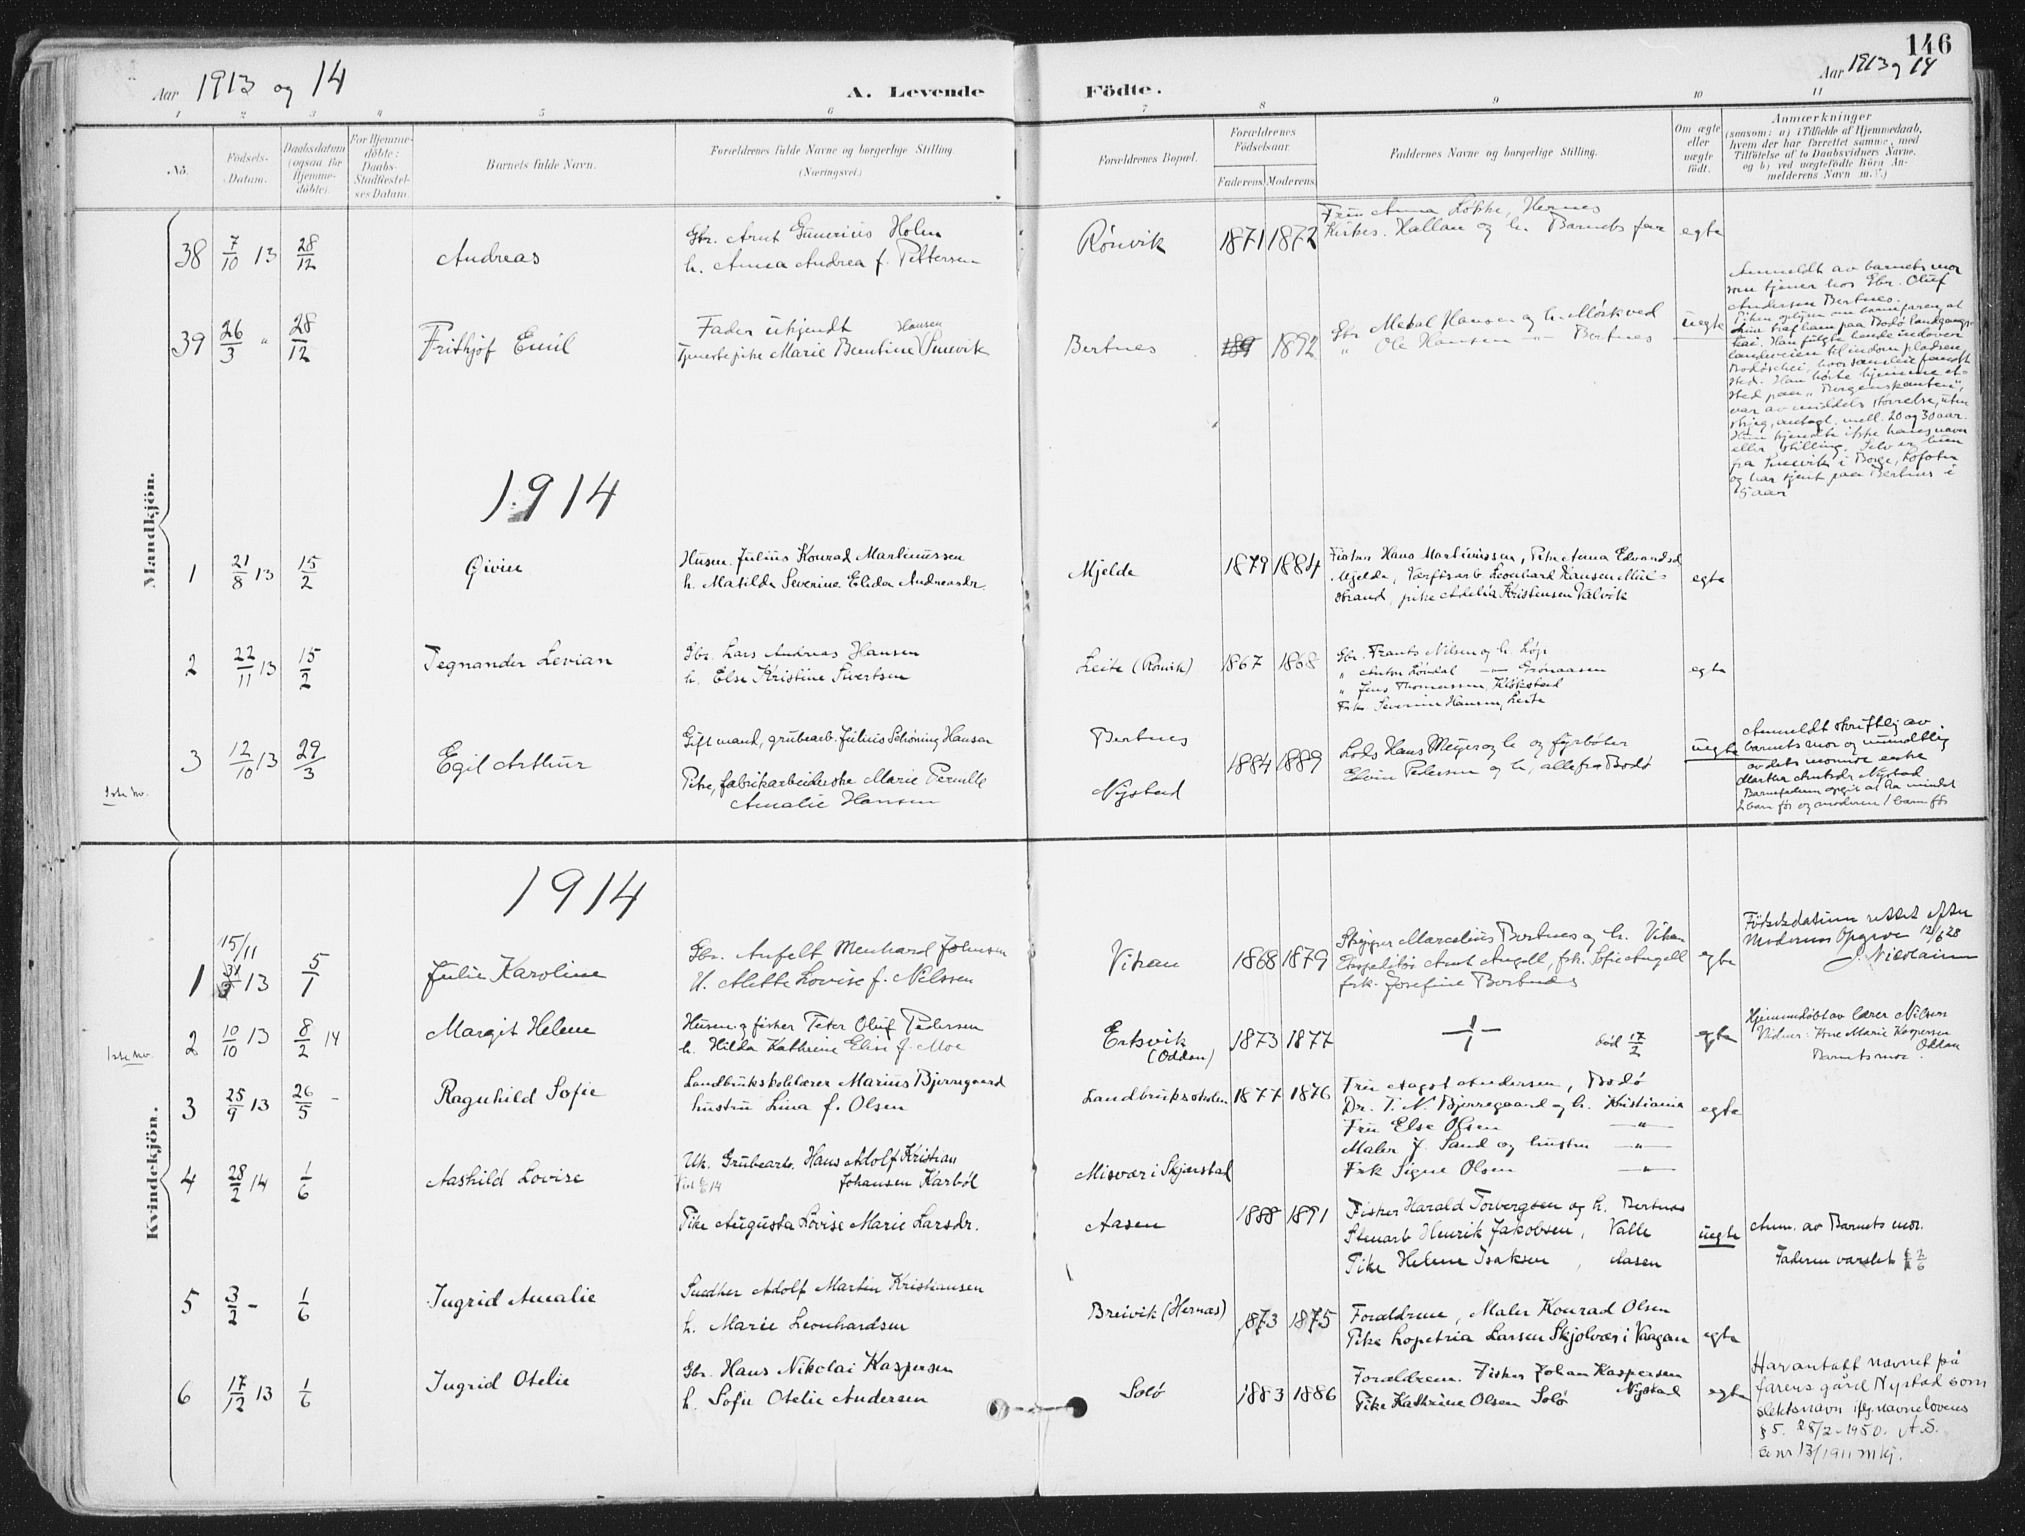 146
Aar 1913 og 14
A. Levende Födte.
Aar 1913 og 14
1 2 3 4 5 6 7 8 9 10 11
No.
Födsels-Datum.
Daabsdatum (ogsaa for Hjemme-döbte).
For Hjemme-döbte: Daabs-Stadfæstel-ses Datum.
Barnets fulde Navn.
Forældrenes fulde Navne og borgerlige Stilling. (Næringsvei.)
Forældrenes Bopæl.
Forældrenes Födselsaar.
Faderens. Moderens.
Faddernes Navne og borgerlige Stilling.
Om ægte eller uægte födt.
Anmærkninger
(saasom: a) i Tilfælde af Hjemmedaab, hvem der har forrettet samme, med Tilföielse af to Daabsvidners Navne, og b) ved uægtefödte Börn Anmelderens Navn m. V.)
Mandkjön.
38 7/10 13 28/12 Andreas
Gbr. Arnt Gunerius Holm
h. Anna Andrea f. Pettersen
Rönvik 1871 1872
Fru Anna Lökke, Hernes
Kirkes. Hallan og h. Barnets far
egte
39 26/3 " 28/12 Frithjof Emil
Fader ukjendt
Tjenestepike Marie Bentine Hansen Sneevik
Bertnes 189 1892
Gbr. Metal Hansen og h. Mörkved
" Ole Hansen — " — Bertnes
uegte
Anmeldt av barnets mor
som tjener hos Gbr. Oluf
Andersen Bertnes.
Piken oplyser om barnefaren, at
hun traf ham paa Bodö Landgangs-
kai. Han fulgte hende indover
landeveien til indom pladsen
Bodösjöen, hvor samleie fandt
sted. Han hörte hjemme et-
sted paa "Borgenskanten",
var av middels störrelse, uten
skjeg, antagl. mell. 20 og 30 aar.
Hun kjendte ikke hans navn
eller stilling. Selv er hun
fra Sneevik i Borge, Lofoten
og har tjent paa Bertnes i
5 aar
1914
1 21/8 13 15/2 Eivin
Husm. Julius Konrad Martinussen
h. Matilda Severine Elida Andreasdr.
Mjelde 1879 1884
Fisker Hans Martinussen, Pike Anna Edvardsd
Mjelde, Værftsarb. Leonhard Hansen Mul-
strand, pike Adelia Kristensen Valvik
egte
2 22/11 13 15/2 Tegnander Levian
Gbr. Lars Andreas Hansen
h. Else Kristine Sivertsen
Leite (Rönvik) 1867 1868
Gbr. Frants Nilsen og h. Löp
" Anton Löndal — " — Grönaasen
" Jens Thomassen, Klökstad
Frk. Severine Hansen, Leite
egte
3 12/10 13 29/3 Egil Arthur
Gift mand, grubearb. Julius Schöning Hansen
Pike, fabrikarbeiderske Marie Pernille
Amalie Hansen
Bertnes
Nystad
1884 1889
Lods Hans Meyer og h. og fyrböter
Edvin Pedersen og h., alle fra Bodö
uegte
Anmeldt skriftlig av
barnets mor og mundtlig
av dets mormor enke
Martha Arntsdr. Nystad
Barnefaderen opgir at ha mindst
2 barn för og moderen 1 barn för
Iste kv.
Kvindekjön.
1914
1 15/11 31/3 13 5/1 Julie Karoline
Gbr. Anfelt Menhard Johnsen
H. Mette Lovise f. Nilssen
Vikan 1868 1879
Skipper Marcelius Bertnes og h. Vikan
Ekspeditör Arnt Angell, frk. Sofie Angell
frk. Josefine Bertnes
egte
Födselsdatum rettet efter
Moderens Opgave 12/6 28
J. Nicolaisen
Iste kv.
2 10/10 13 8/2 14 Margit Helene
Husm. og fisker Peter Oluf Pedersen
h. Hilda Kathrine Elise f. Moe
Ertsvik (Oddan) 1873 1877
död 17/2
egte
Hjemmedöbt av lærer Nilsen
Vidner: Kone Marie Kaspersen
Oddan
Barnets mor.
3 25/9 13 26/5 - Ragnhild Sofie
Landbrukskolelærer Marius Bjerregaard
hustru Lina f. Olsen
Landbruksskolen 1877 1876
Fru Aagot Andersen, Bodö
Dr. T. N. Bjerregaard og h. Kristiania
Fru Else Olsen — " —
Maler J. Sand og hustru — " —
Frk Signe Olsen — " —
egte
4 28/2 14 1/6 Aashild Lovise
Uk. Grubearb. Hans Adolf Kristian
Johansen Karböl
Pike Augusta Lovise Marie Larsdr.
Misvær i Skjærstad
Aasen
1888 1891
Fisker Harald Torbergsen og h. Bertnes
Stenarb Henrik Jakobsen, Valle
Pike Helene Isaksen, Aasen
uegte
Anm. av Barnets mor.
Faderen varslet 2/6
5 3/2 - 1/6 Ingrid Amalie
Snedker Adolf Martin Kristiansen
h. Marie Leonhardsen
Breivik (Hernæs) 1873 1875
Forældrene, Maler Konrad Olsen
Pike Lopetria Larsen Skjolvær i Vaagan
egte
6 17/12 13 1/6 Ingrid Otelie
Gbr. Hans Nikolai Kaspersen
h. Sofie Otelie Andersen
Solö 1883 1886
Forældrene. Fisker Johan Kaspersen Nystad
Pike Kathrine Olsen Solö
egte
Har antatt navnet på
farens gård Nystad som
slektsnavn iflg. navnelovens
§ 5. 28/2-1950. A.S.
se nr 13/1911 mkj.